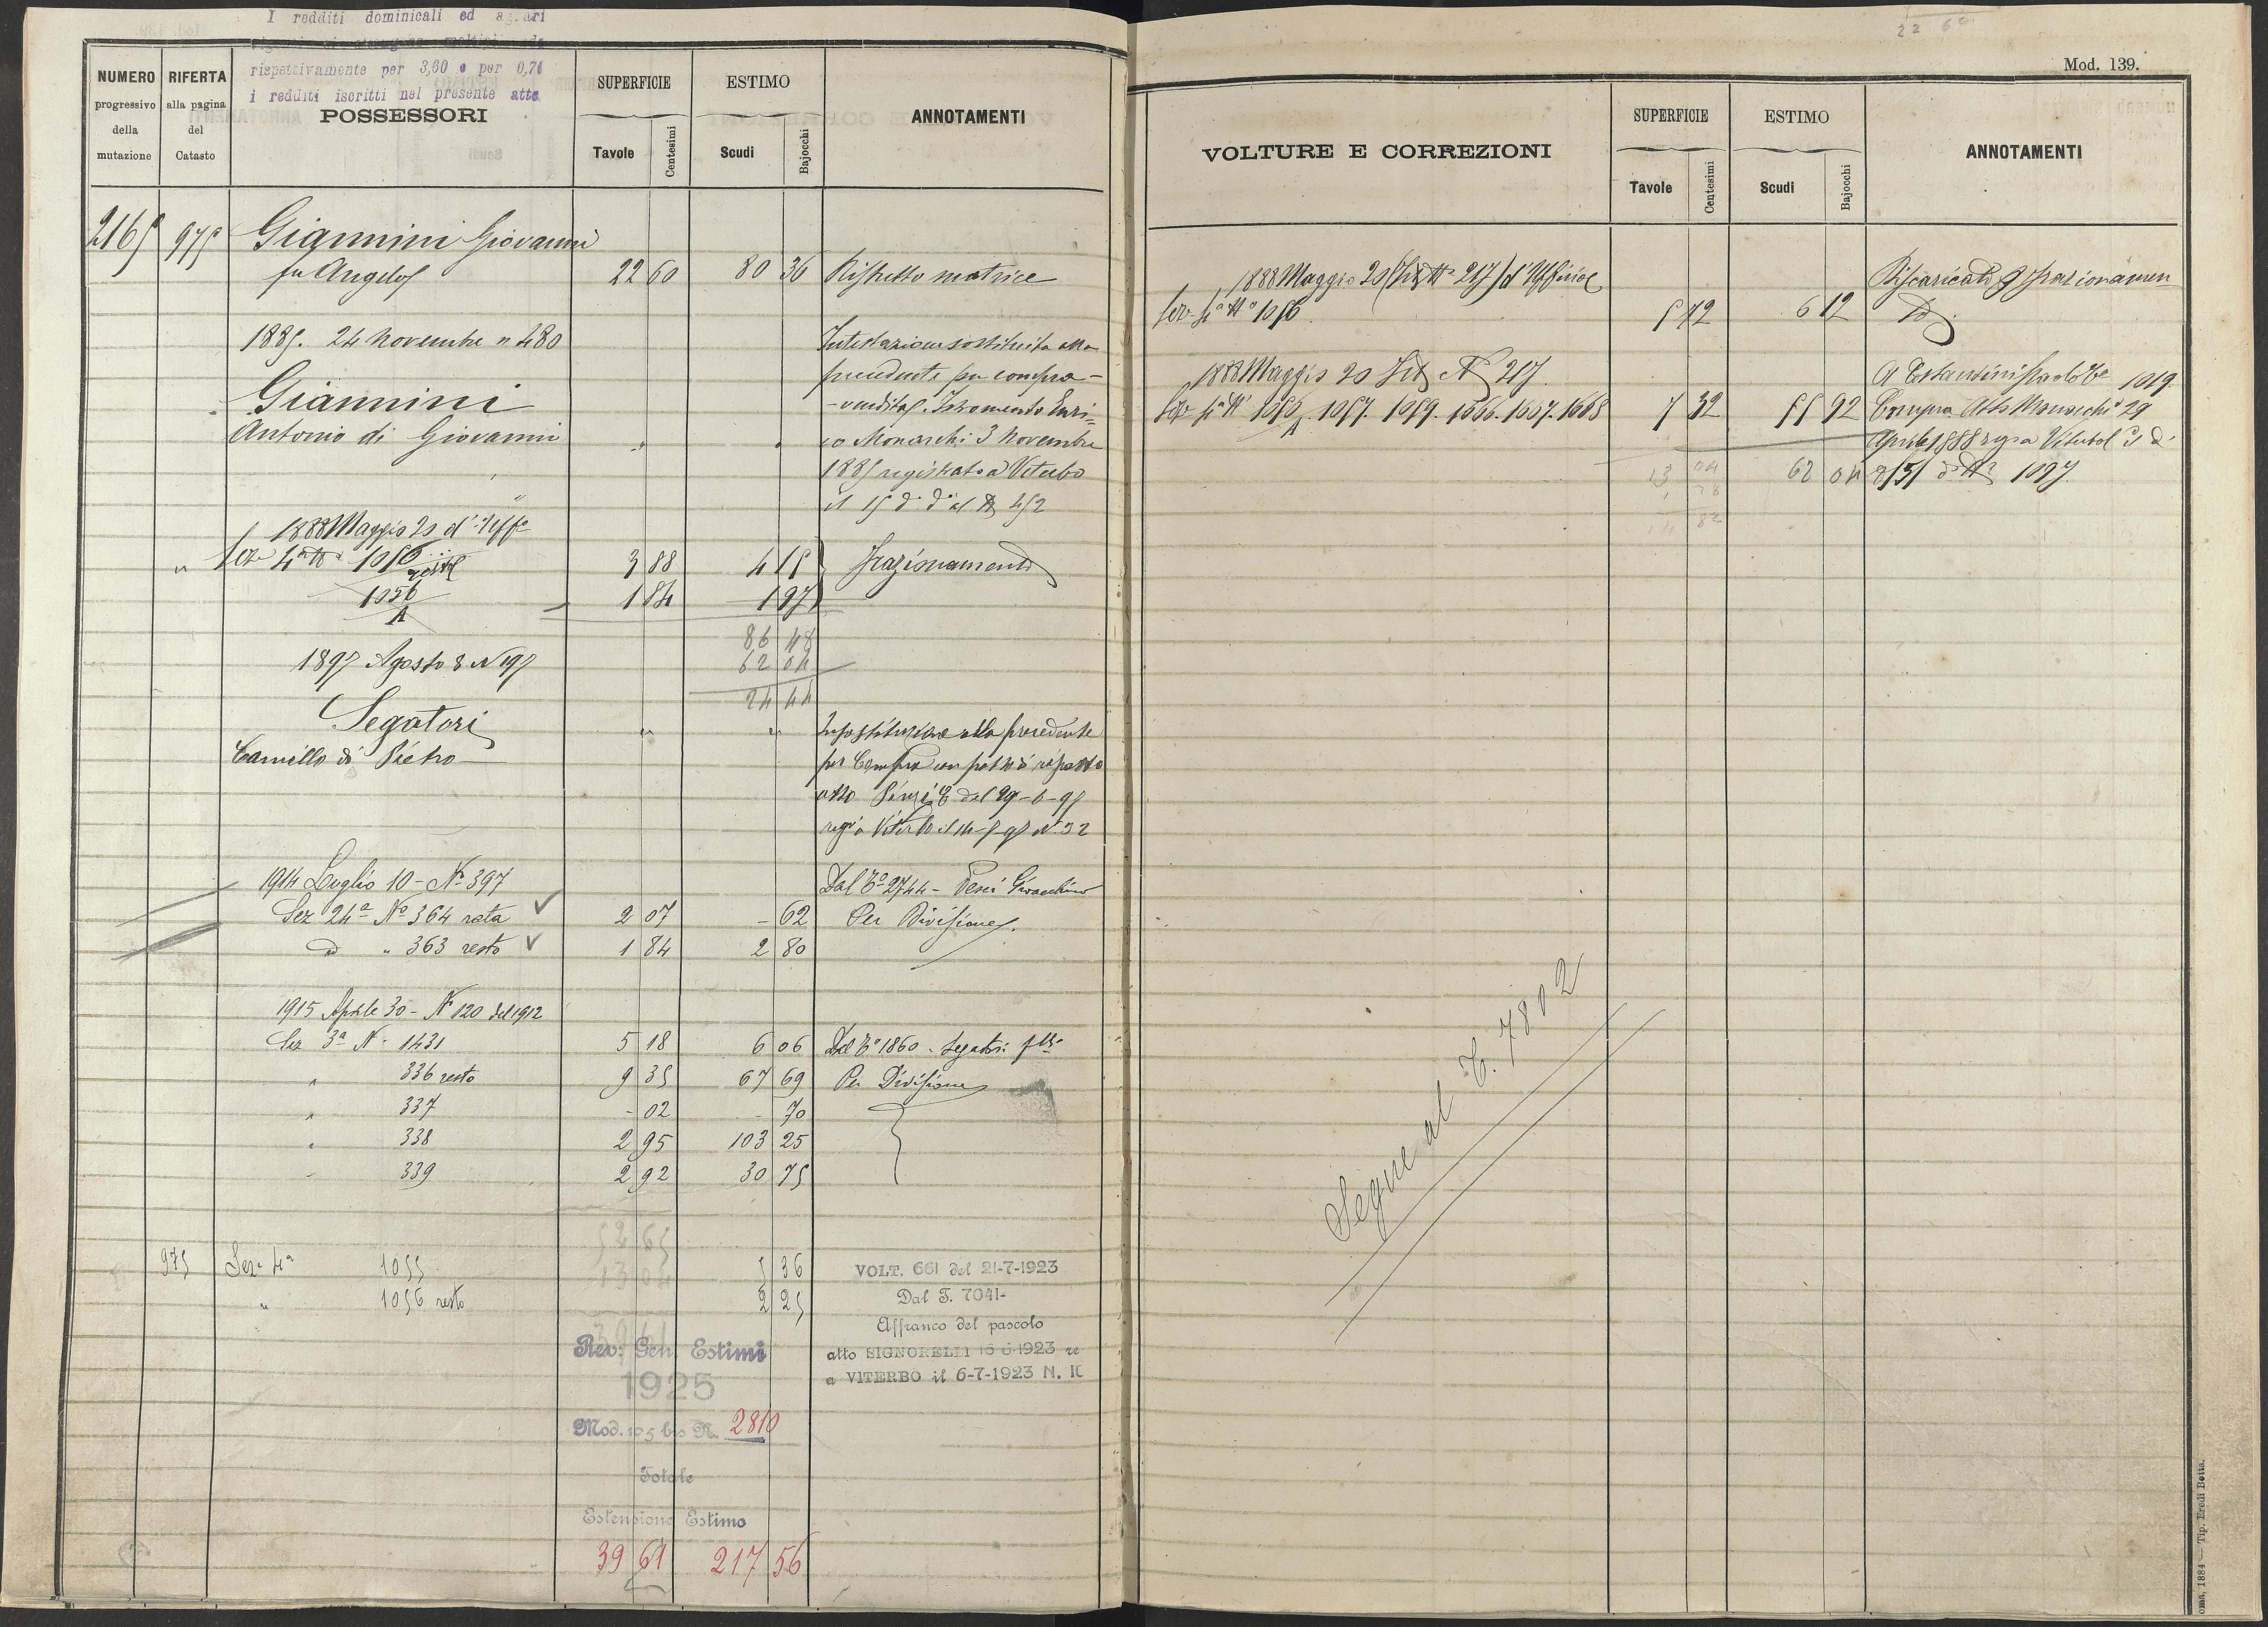 I redditi dominicali ed agrari
rispettivamente per 3,60 e per 0,71
i redditi iscritti nel presente atto
NUMERO progressivo della mutazione
RIFERTA alla pagina del Catasto
POSSESSORI
SUPERFICIE
Tavole
Centesimi
ESTIMO
Scudi
Bajocchi
ANNOTAMENTI
2165 975 Giannini Giovanni
fu Angelo 22 60 80 36 Rispetto matrice
1885. 24 Novembre n 480 Intestazione sostituita alla
precedente per compra-
Giannini -vendita. Istromento Enri=
Antonio di Giovanni " " co Monarchi 3 Novembre
1885 registrato a Viterbo
il 15 d° d° al N 452
1888 Maggio 20 d'Uff°
" Sez 4ª N° 1056 resto 3 88 4 15 Frazionamento
1056/A 1 84 1 97
86 48
1897 Agosto 8 N 197 62 04
24 44
Segatori " "
Camillo di Pietro per Compra con
atto Penzi E del 29-6-97
reg° a Viterbo il 14-7-97 N° 32
1914 Luglio 10 - N° 397 Dal T° 2744 -
Sez 24ª N° 364 rata 2 07 - 62 Per Divisione.
d " 363 resto 1 84 2 80
1915 Aprile 30 - N° 120 del 1912
Sez 3ª N° 1431 5 18 6 06 Dal T° 1860. Segatori flli
" 336 resto 9 35 67 69 Per Divisione
" 337 - 02 - 70
" 338 2 95 103 25
" 339 2 92 30 75
52 65
975 Sez 4ª 1055 13 04 5 36 VOLT. 661 del 21-7-1923
" 1056 resto 2 25 Dal T. 7041-
39 61 Affranco del pascolo
Rev: Gen. Estimi atto SIGNORELLI 1923 re
1925 a VITERBO il 6-7-1923 N. 10
Mod. 105 bis N. 2810
Totale
Estensione Estimo
39 61 217 56
22 60
Mod. 139.
VOLTURE E CORREZIONI
SUPERFICIE
Tavole
Centesimi
ESTIMO
Scudi
Bajocchi
ANNOTAMENTI
1888 Maggio 20 (Tit N° 217) d'Ufficio Discaricato p frazionamen
Sez 4ª N° 1056 5 72 6 12 to.
1888 Maggio 20 Tit N° 217. A Costantini Paolo T° 1019
Sez 4ª N° 1056/A. 1057. 1059. 1666. 1667. 1668 7 32 55 92 Compra Atto Monarchi 29
Aprile 1888 reg° a Viterbo il dì
13 04 62 04 8/5/ d° N° 1097.
78
82
Segue al T. 7802
oma, 1884 — Tip. Eredi Botta.